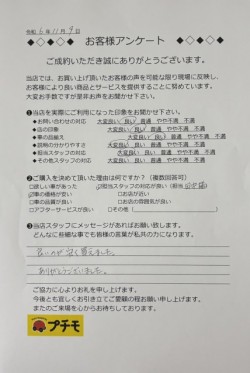 令和6年11月9日
◆◇◆◇◆ お客様アンケート ◆◇◆◇◆
ご成約いただき誠にありがとうございます。
当店では、お買い上げ頂いたお客様の声を可能な限り現場に反映し、
お客様により良い商品とサービスを提供することに努めています。
大変お手数ですが是非お声をお聞かせ下さい。
❶当店を実際にご利用になった印象をお聞かせ下さい。
♦お問い合わせの対応 大変良い 良い 普通 やや不満 不満
♦店の印象 大変良い 良い 普通 やや不満 不満
♦車の品揃え 大変良い 良い 普通 やや不満 不満
♦説明の分かりやすさ 大変良い 良い 普通 やや不満 不満
♦担当スタッフの対応 大変良い 良い 普通 やや不満 不満
♦その他スタッフの対応 大変良い 良い 普通 やや不満 不満
❷ご購入を決めて頂いた理由は何ですか？（複数回答可）
□欲しい車があった ☑担当スタッフの対応が良い（担当
☑車の価格 □お店が近い
□車の品質 □お店の雰囲気が良い
□アフターサービスが良い □その他（ ）
❸当店スタッフにメッセージがあればお願い致します。
どんなに些細な事でも皆様の言葉が私共の力になります。
良いのが安く買えました。
ありがとうございました。
ご協力に心よりお礼を申し上げます。
今後とも宜しくお引き立てご愛顧の程お願い申し上げます。
またのご来場を心からお待ちしております。
プチモ